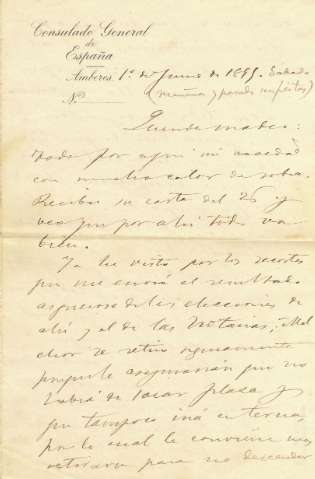 Consulado General
de
España
Amberes, 1º de Junio de 1895. Sabado
Nº (mañana y pasado infectos)
Querida madre:
Nada por aquí ni novedad
con mucho calor de sobra.
Recibo su carta del 26 y
veo que por ahí todos van
bien.
Ya he visto por los recortes
que me envia el resultado
asqueroso de las elecciones de
ahí y el de las Notarias;
se retiró seguramente
porque le asegurarían que no
habrá de sacar plaza y
que tampoco irá en terna,
por lo cual le conviene mas
retirarse para no descender